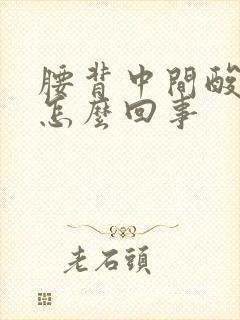 腰背中間酸
怎麼回事
老石頭